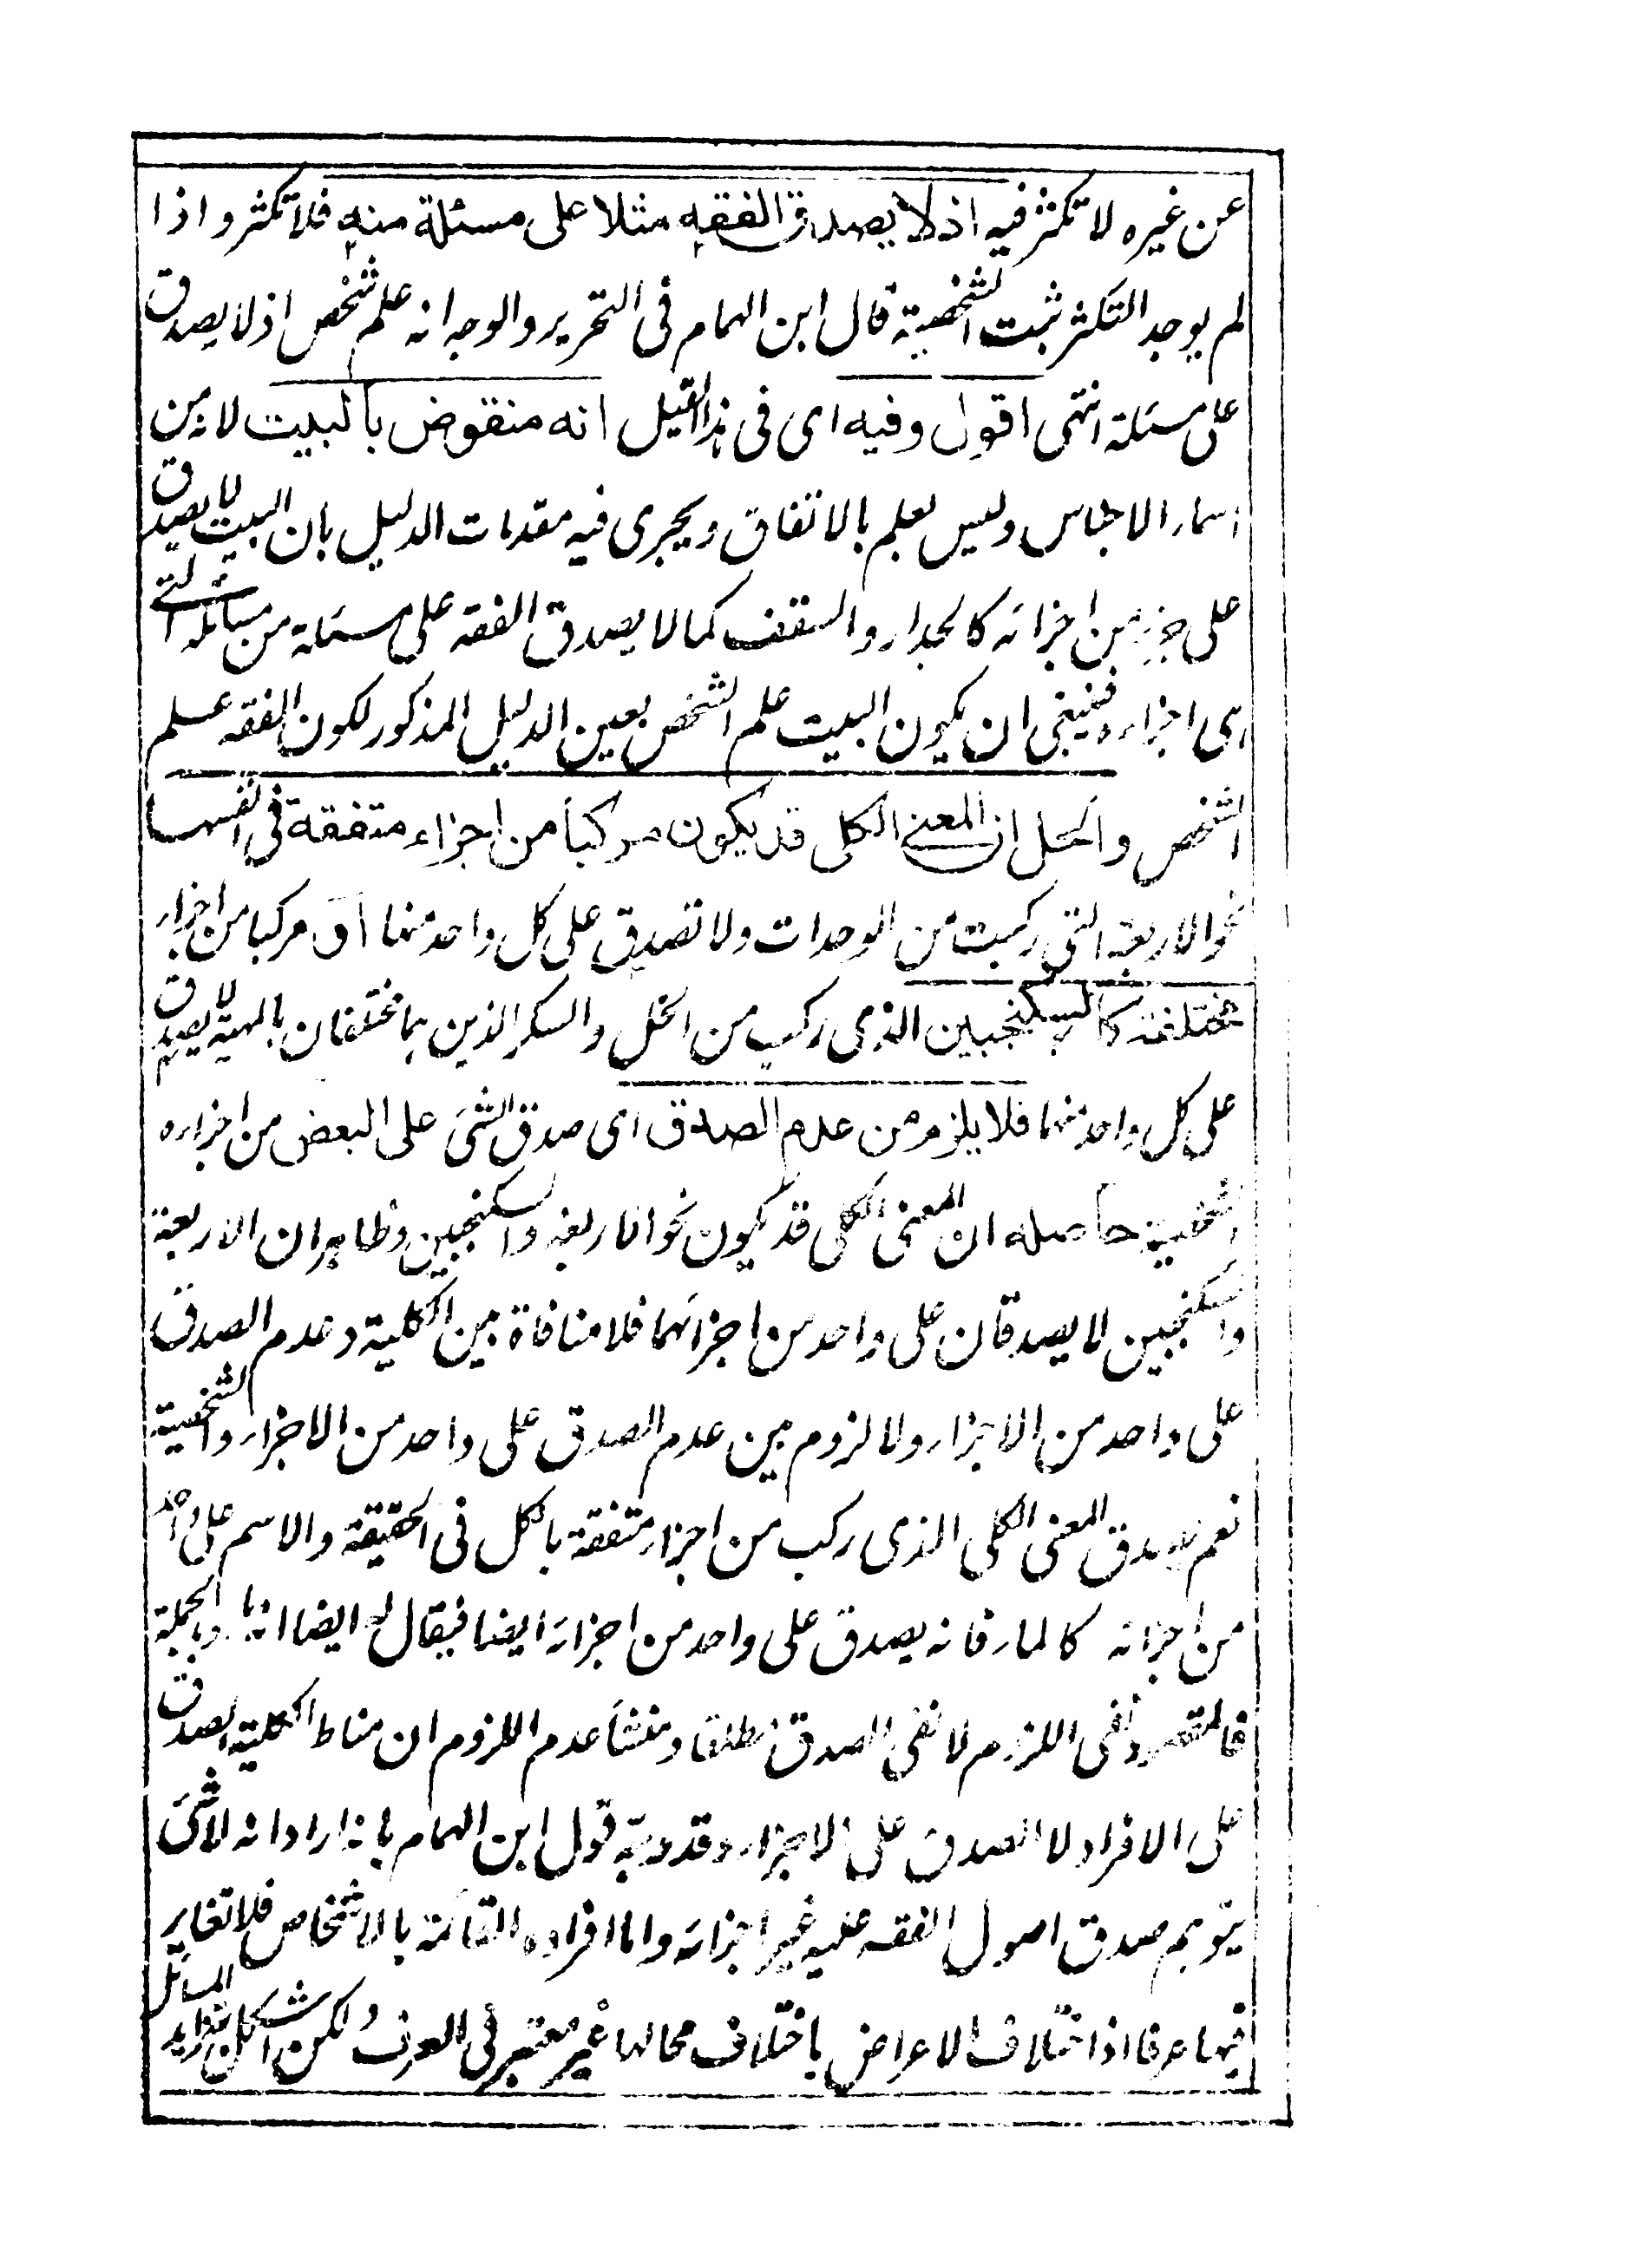 عن غيره لا تكثر فيه اذ لا يصدق الفقه مثلا على مسئلة منه فلا تكثر و اذا
لم يوجد التكثر ثبت الشخصية قال ابن الهمام فى التحرير والوجه انه علم شخص اذ لا يصدق
على مسئلة انتهى اقول وفيه اى فى هذا القيل انه منقوض بالبيت لانه من
اسماء الاجناس وليس بعلم بالاتفاق ويجرى فيه مقدمات الدليل بان البيت لا يصدق
على جزء من اجزائه كالجدار والسقف كما لا يصدق الفقه على مسئلة من مسائله التى
هى اجزاءه فينبغى ان يكون البيت علم الشخص بعين الدليل المذكور لكون الفقه علم
الشخص والحل ان المعنى الكلى قد يكون مركباً من اجزاء متفقة فى انفسها
نحو الاربعة التى ركبت من الوحدات ولا تصدق على كل واحد منها او مركبا من اجزاء
مختلفة كالسكنجبين الذى ركب من الخل والسكر الذين هما مختلفان بالمهية لا يصدق
على كل واحد منهما فلا يلزم من عدم الصدق اى صدق الشئ على البعض من اجزاءه
الشخصية حاصله ان المعنى الكلى قد يكون نحو الاربعة والسكنجبين وظاهر ان الاربعة
والسكنجبين لا يصدقان على واحد من اجزائهما فلا منافاة بين الكلية وعدم الصدق
على واحد من الاجزاء ولا لزوم بين عدم الصدق على واحد من الاجزاء والشخصية
نعم يصدق المعنى الكلى الذى ركب من اجزاء متفقة بالكل فى الحقيقة والاسم على واحد
من اجزائه كالماء فانه يصدق على واحد من اجزائه ايضا فيقال له ايضا انه ماء وبالجملة
فالمقصود نفى اللزوم لا نفى الصدق مطلقا ومنشأ عدم اللزوم ان مناط الكلية الصدق
على الافراد لا الصدق على الاجزاء وقد يوجه قول ابن الهمام بانه اراد انه لا شئ
يتوهم صدق اصول الفقه عليه غير اجزائه واما افراده القائمة بالاشخاص فلا تغاير
فيها عرفا اذ اختلاف الاعراض باختلاف محالها غير معتبر فى العرف لكن اشكل بتزايد المسائل